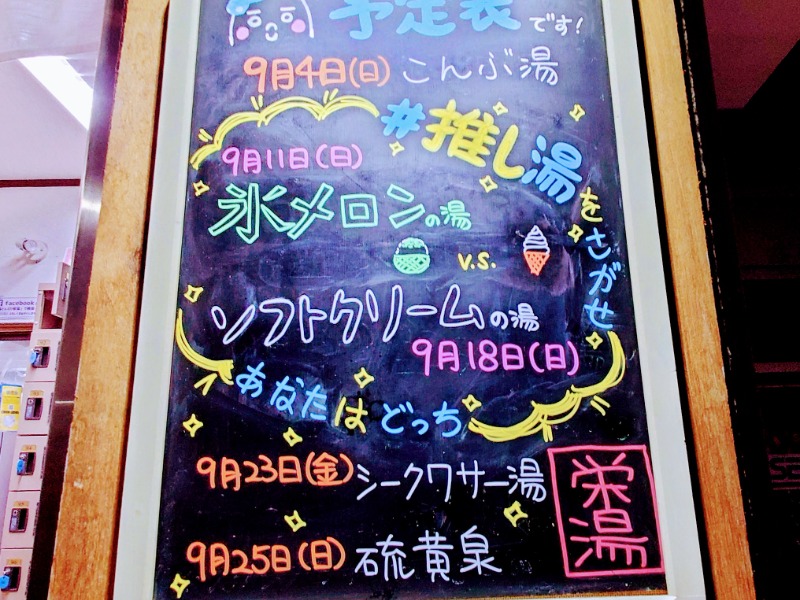 予定表です!
9月4日(日) こんぶ湯
#推し湯をさがせ
9月11日(日)
氷メロンの湯
v.s.
ソフトクリームの湯
9月18日(日)
あなたはどっち
9月23日(金) シークワサー湯
9月25日(日) 硫黄泉
栄湯
Facebook